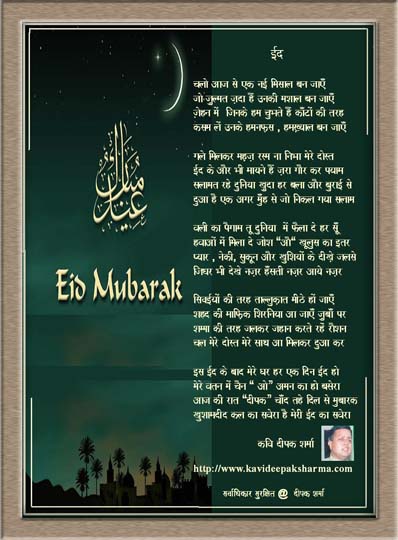 ईद
चलो आज से एक नई मिसाल बन जाएँ
जो ज़ुल्मत ज़दा हैं उनकी मशाल बन जाएँ
ज़ेहन में जिनके हम चुभते हैं काँटों की तरह
कसम लें उनके हमनफ़स , हमख़्याल बन जाएँ
गले मिलकर महज़ रस्म ना निभा मेरे दोस्त
ईद के और भी मायने हैं ज़रा गौर कर पयाम
सलामत रहे दुनिया खुदा हर बला और बुराई से
दुआ है एक अगर मुँह से जो निकल गया सलाम
वली का पैगाम तू दुनिया में फैला दे हर सूँ
हवाओं में मिला दे जोश "औ" खुलूस का इतर
प्यार , नेकी, सुकून और खुशियों के दीखे जलसे
जिधर भी देखे नज़र हँसती नज़र आये नज़र
सिवईयों की तरह ताल्लुक़ात मीठे हों जाएँ
शहद की माफ़िक शिरनिया आ जाएँ ज़ुबाँ पर
शम्मा की तरह जलकर जहान करते रहें रौशन
चल मेरे दोस्त मेरे साथ आ मिलकर दुआ कर
इस ईद के बाद मेरे घर हर एक दिन ईद हो
मेरे वतन में चैन " ओ" अमन का हो बसेरा
आज की रात "दीपक" चाँद तहे दिल से मुबारक
खुशामदीद कल का सवेरा है मेरी ईद का सवेरा
عيد مبارك
Eid Mubarak
कवि दीपक शर्मा
http://www.kavideepaksharma.com
सर्वाधिकार सुरक्षित @ दीपक शर्मा